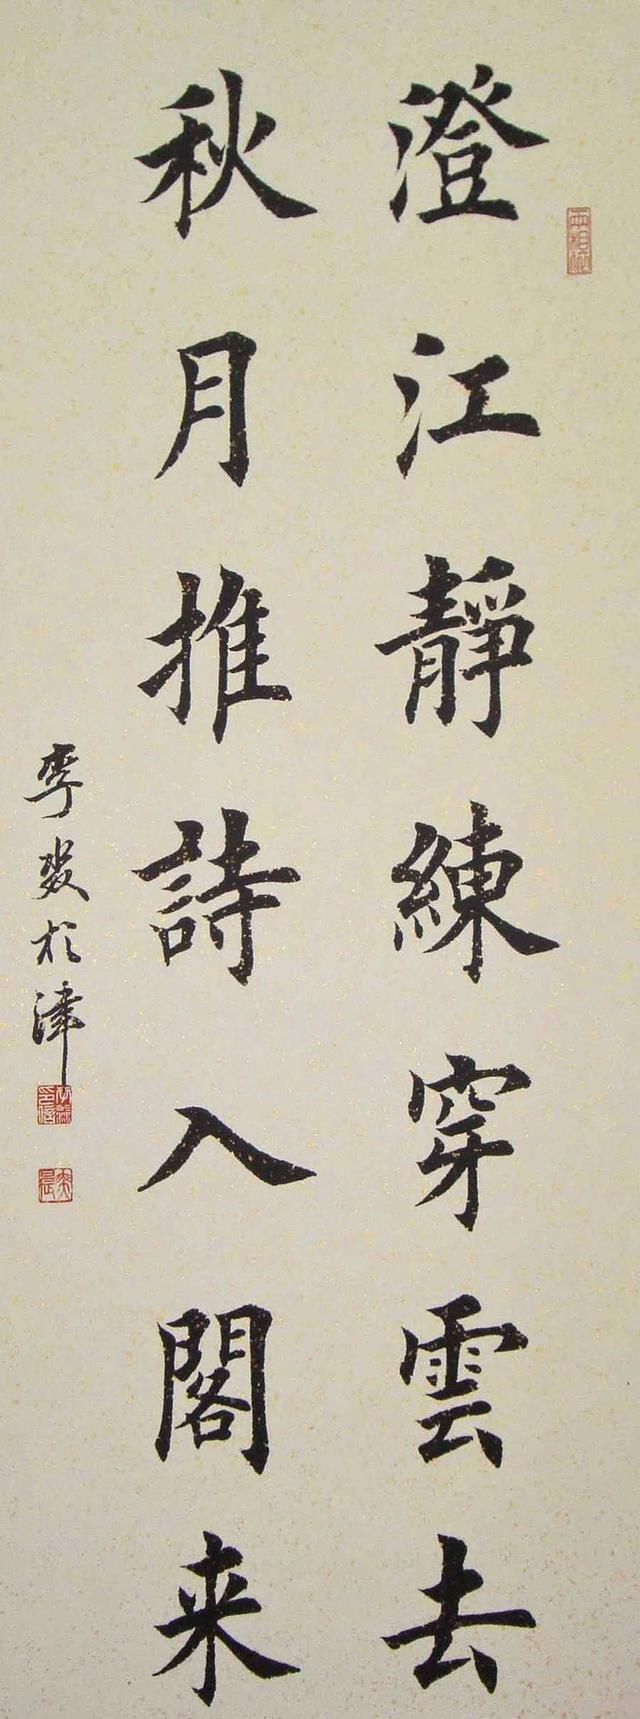 澄江靜練穿雲去
秋月推詩入閣来
李燚於津